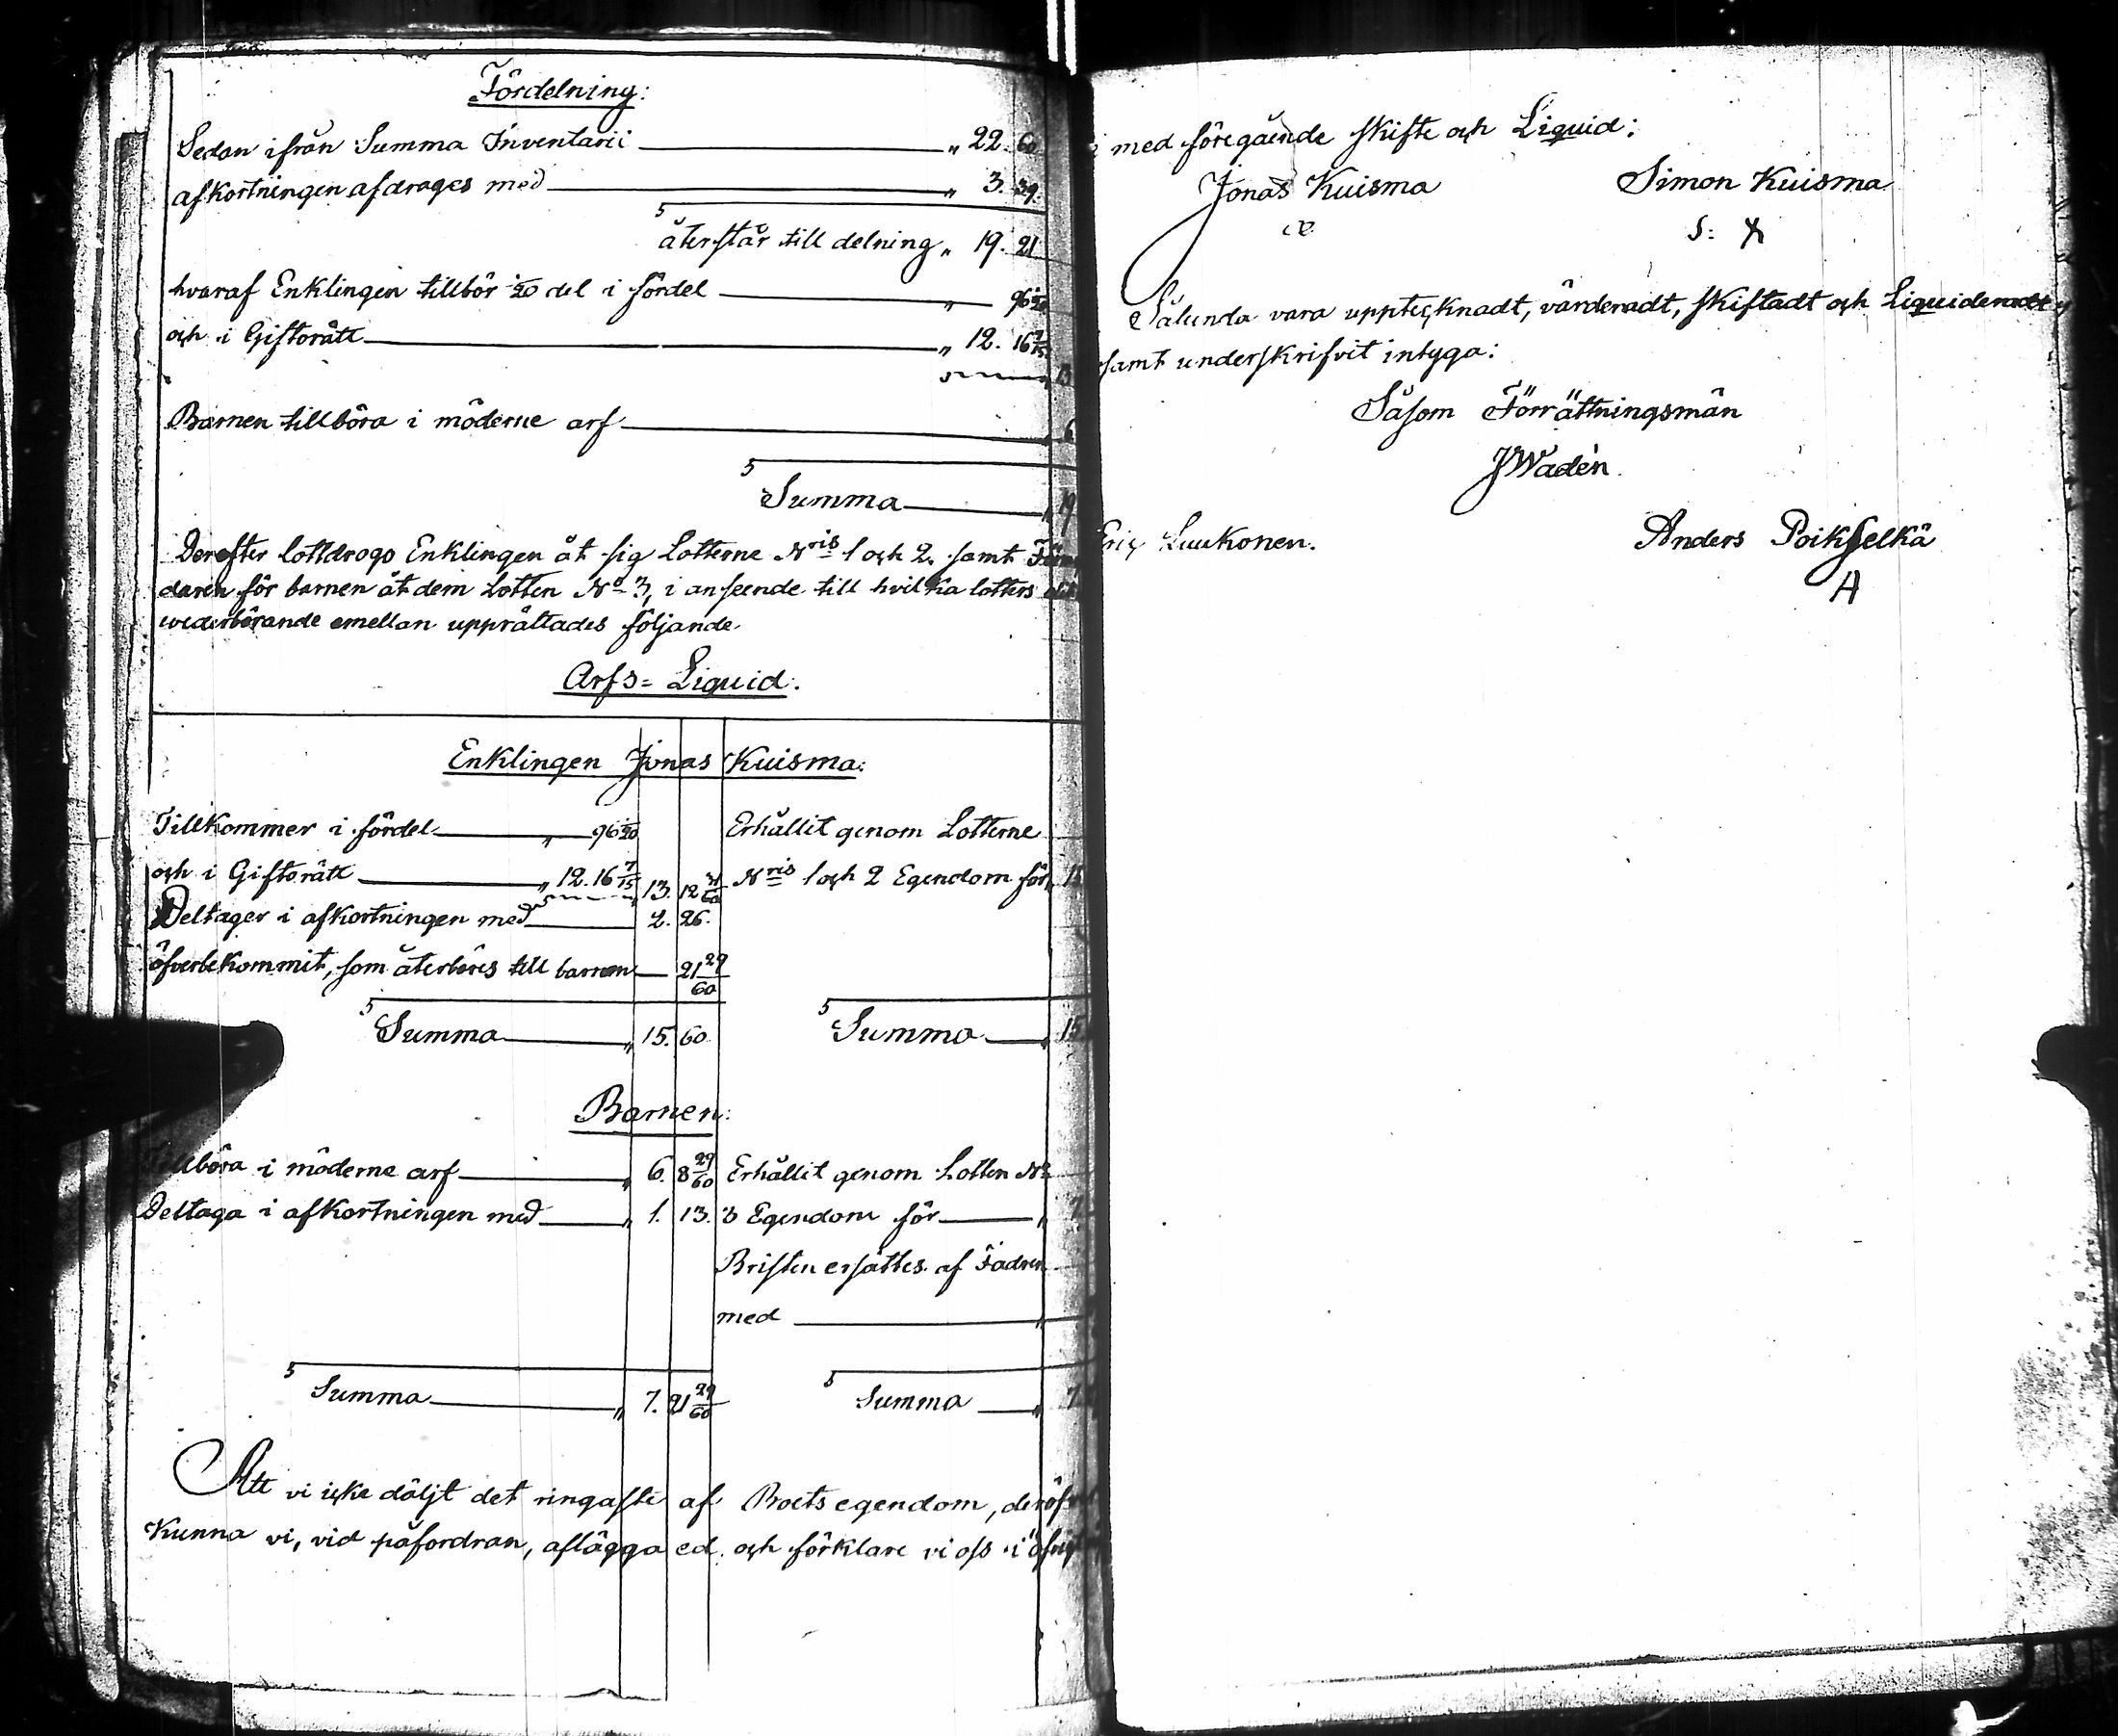 Fördelning:
Sedan ifrån Summa Inventarii " 22. 60
afkortningen afdrages med " 3. 39.
återstår till delning " 19. 21
hvaraf Enklingen tillbör 1/20 del i fördel " 96 1/20
och i Giftorätt " 12. 16 7/15
" 13
Barnen tillböra i möderne arf " 6
Summa " 19
Derefter lottdrogo Enklingen åt sig Lotterne Nris 1 och 2. samt
daren för barnen åt dem Lotten No 3, i anseende till hvilka lotters
wederbörande emellan upprättades följande
Arfs= Liquid.
Enklingen Jonas Kuisma:
Tillkommer i fördel " 96 1/20 Erhållit genom Lotterne
och i Giftorätt " 12. 16 7/15 13. 12 31/60 Nris 1 och 2 Egendom för " 15
Deltager i afkortningen med 2. 26.
öfverbekommit, som återböres till barnen 21 29/60
Summa " 15. 60 Summa " 15
Barnen:
Tillböra i möderne arf " 6. 8 29/60 Erhållit genom Lotten No
Deltaga i afkortningen med " 1. 13. 3 Egendom för " 7
Bristen ersättes af Fadren
med "
Summa " 7. 21 29/60 Summa " 7
Att vi icke döljt det ringaste af Boets egendom,
Kunna vi, vid påfordran, aflägga ed. och förklare vi oss i
med föregående skifte och Liquid:
Jonas Kuisma Simon Kuisma
S:
Sålunda vara upptecknadt, värderadt, skiftadt och Liquideradt
samt underskrifvit intyga:
Såsom Förrättningsmän
JWadén.
Eric Luukonen. Anders Poikselkä
A